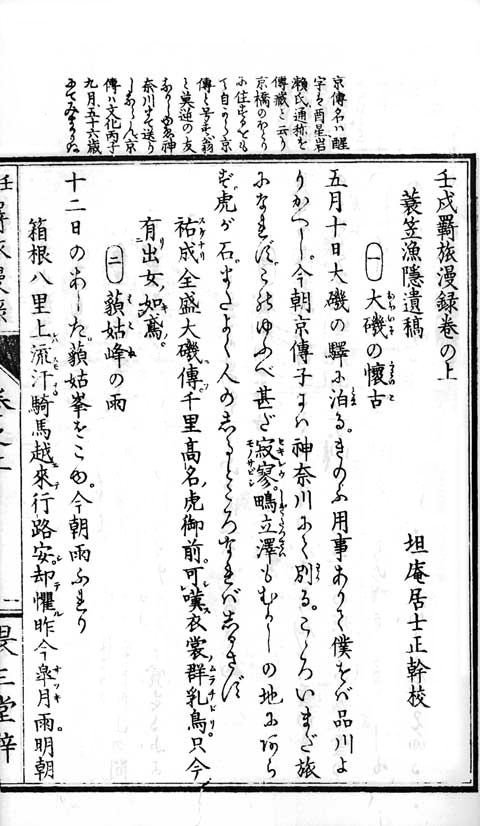 京傳名ハ醒
字ハ酉星岩
瀬氏通称を
傳藏と云ふ
京橋のほとり
に住するをも
て自から京
傳と号す翁
と莫逆の友
なりしゆゑ神
奈川まで送り
しならん京
傳ハ文化丙子
九月五十六歳
にてみまかりぬ
壬戌羇旅漫録巻の上
蓑笠漁隱遺稿
坦庵居士正幹校
一 大磯の懷古
五月十日大磯の驛に泊る。きのふ用事ありて僕をば品川よ
りかへし。今朝京傳子には神奈川にて別る。こゝろいまだ旅
になれず。このゆふべ甚だ寂寥。鴫立澤もむかしの地にあら
ず。虎が石。またよく人のしるところなればしるさず
祐成全盛大磯傳。千里高名虎御前。可嘆衣裳群乳鳥。只今
有出女如鳶。
二 藐姑峰の雨
十二日のあした。藐姑峯をこゆ。今朝雨ふれり
箱根八里上流汗。騎馬越來行路安。却懼昨今皐月雨。明朝